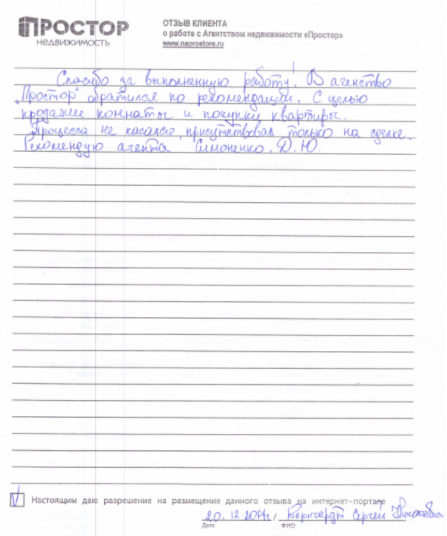 ПРОСТОР
НЕДВИЖИМОСТЬ
ОТЗЫВ КЛИЕНТА
о работе с Агентством недвижимости «Простор»
www.naprostore.ru
Спасибо за выполненную работу. В агенство
„Простор" обратился по рекомендации. С целью
продажи комнаты и покупки квартиры.
Процесса не касался, присутствовал только на сделке.
Рекомендую агента Симоненко. Д. Ю.
Настоящим даю разрешение на размещение данного отзыва на интернет-портале
20. 12 2014г, Сергей
Дата ФИО